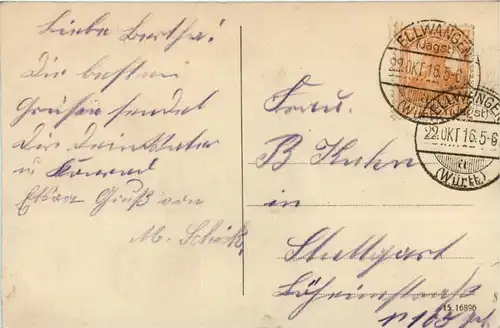 Liebe Bertha!
Die besten
Grüße sendet
Dir Dein Vater
u Konrad
Extra Gruß von
M. Schick
ELLWANGEN
(Jagst)
22.OKT.16.5-6
(Württ.)
ELLWANGEN
(Jagst)
22.OKT.16.5-6
(Württ.)
Frau
B Kuhn
in
Stuttgart
15 16896